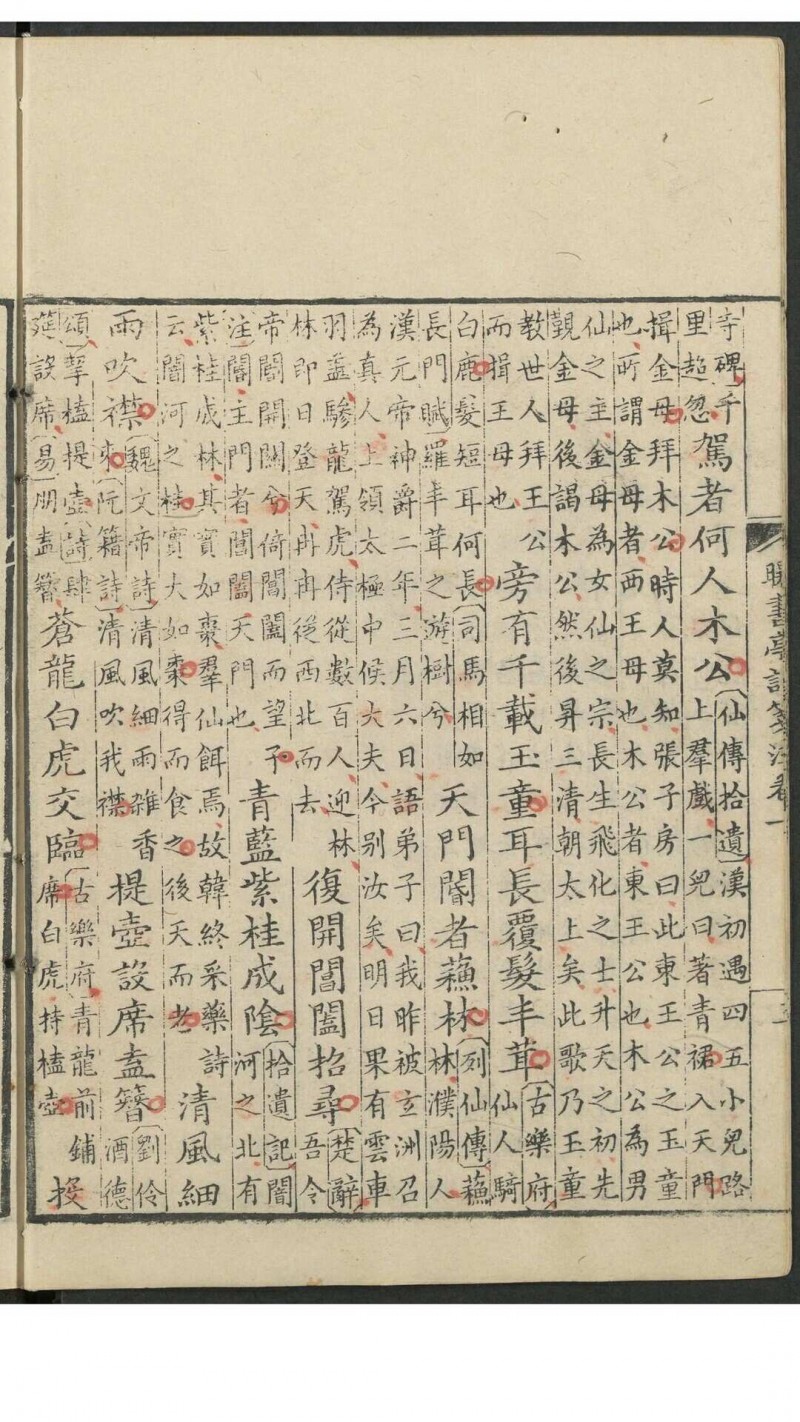 寺碑千
里超忽
駕者何人木公
仙傳拾遺漢初遇四五小兒路
上羣戲一兒曰著青裙入天門
揖金母拜木公時人莫知張子房曰此東王公之玉童
也所謂金母者西王母也木公者東王公也木公為男
仙之主金母為女仙之宗長生飛化之士升天之初先
覲金母後謁木公然後昇三清朝太上矣此歌乃玉童
教世人拜王公
而揖王母也
旁有千載玉童耳長覆髮丰茸
古樂府
仙人騎
白鹿髮短耳何長司馬相如
長門賦羅丰茸之游樹兮
天門閽者蘓林
列仙傳蘓
林濮陽人
漢元帝神爵二年三月六日語弟子曰我昨被玄洲召
為真人上領太極中候大夫今別汝矣明日果有雲車
羽葢驂龍駕虎侍從數百人迎林
林即日登天冉冉從西北而去
復開閶闔招尋
楚辭
吾令
帝閽開關兮倚閶闔而望予
注閽主門者閶闔天門也
青藍紫桂成陰
拾遺記闇
河之北有
紫桂成林其實如棗羣仙餌焉故韓終采藥詩
云闇河之桂實大如棗得而食之後天而老
清風細
雨吹襟
魏文帝詩清風細雨雜香
來阮籍詩清風吹我襟
提壺設席盍簪
劉伶
酒德
頌挈榼提壺詩肆
筵設席易朋盍簪
蒼龍白虎交臨
古樂府青龍前鋪
席白虎持榼壺
投
書亭詩箋注卷一